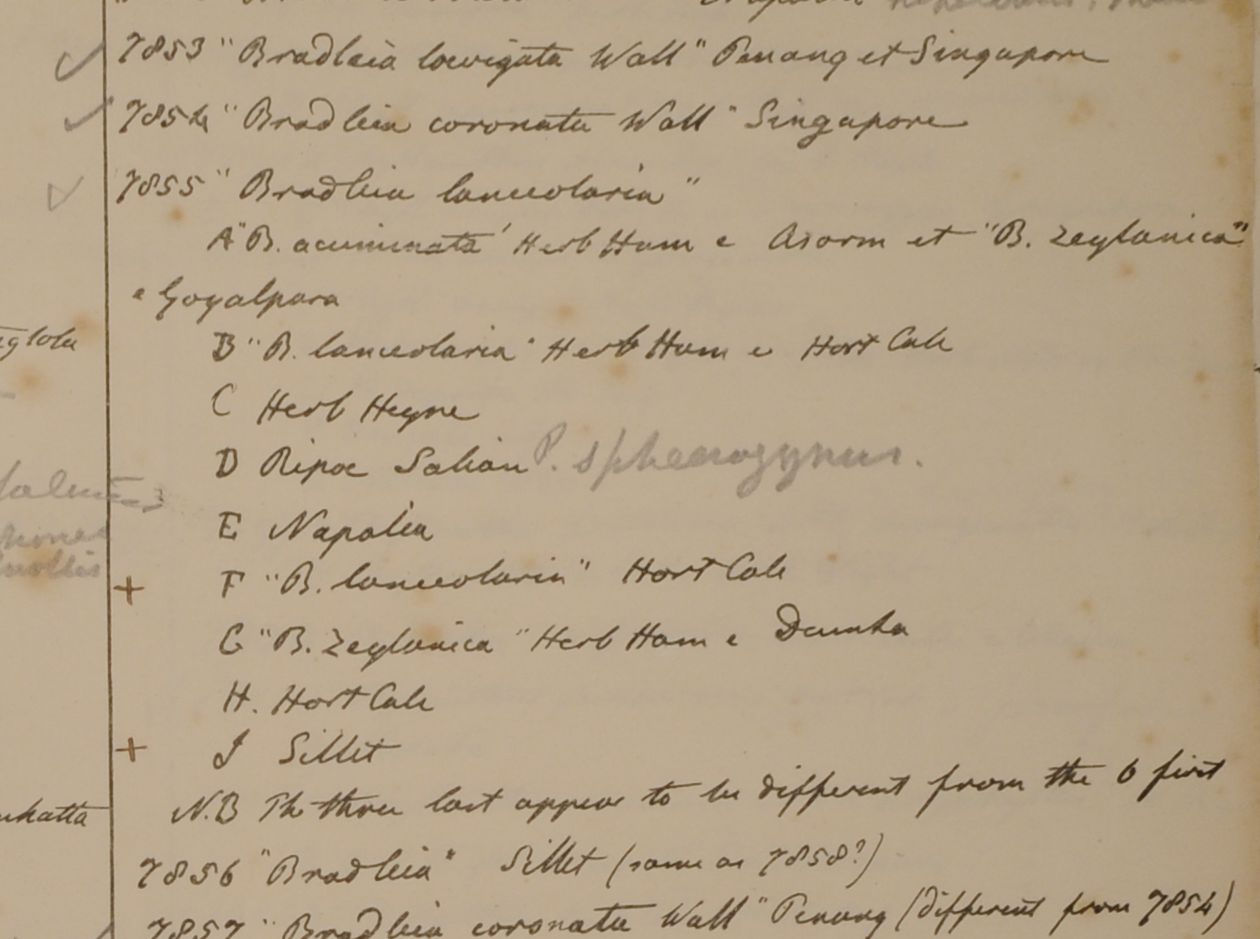 7853 "Bradleia laevigata Wall" Penang et Singapore
7854 "Bradleia coronata Wall" Singapore
7855 "Bradleia lanceolaria"
A "B. acuminata" Herb Ham e Asorm et "B. zeylanica"
e Goyalpara
B "B. lanceolaria" Herb Ham e Hort Calc
C Herb Heyne
D Ripae Salian P. sphaerogynus.
E Napalia
F "B. lanceolaria" Hort Calc
G "B. zeylanica" Herb Ham e
H. Hort Calc
J Sillet
N.B Th three last appear to be different from the 6 first
7856 "Bradleia" Sillet (same as 7858?)
7857 "Bradleia coronata Wall" Penang (different from 7854)